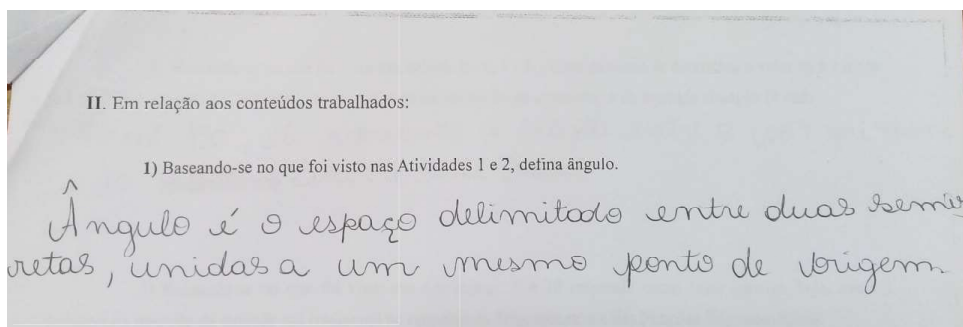 II. Em relação aos conteúdos trabalhados:
1) Baseando-se no que foi visto nas Atividades 1 e 2, defina ângulo.
Ângulo é o espaço delimitado entre duas semi
retas, unidas a um mesmo ponto de origem